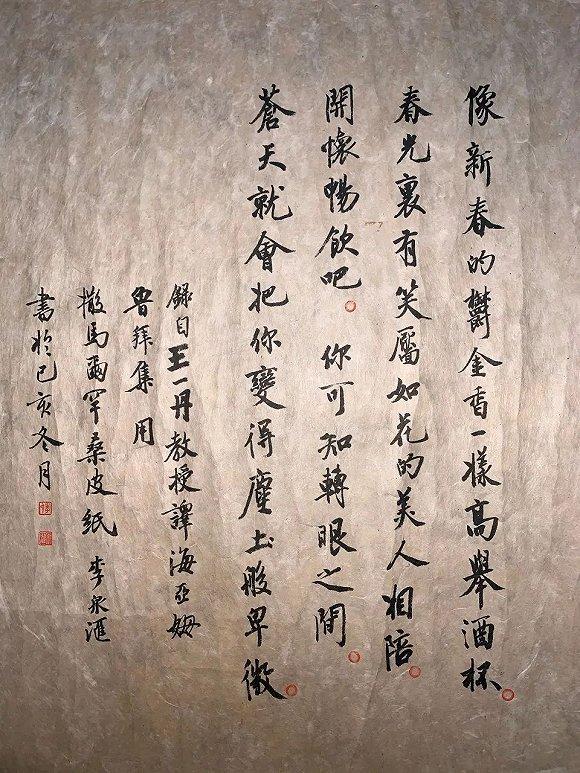 像新春的鬱金香一樣高舉酒杯。
春光裏有笑靨如花的美人相陪。
開懷暢飲吧。你可知轉眼之間。
蒼天就會把你變得塵土般卑微。
錄自王一丹教授譯海亞姆
魯拜集用
撒馬爾罕桑皮紙 李泉滙
書於己亥冬月